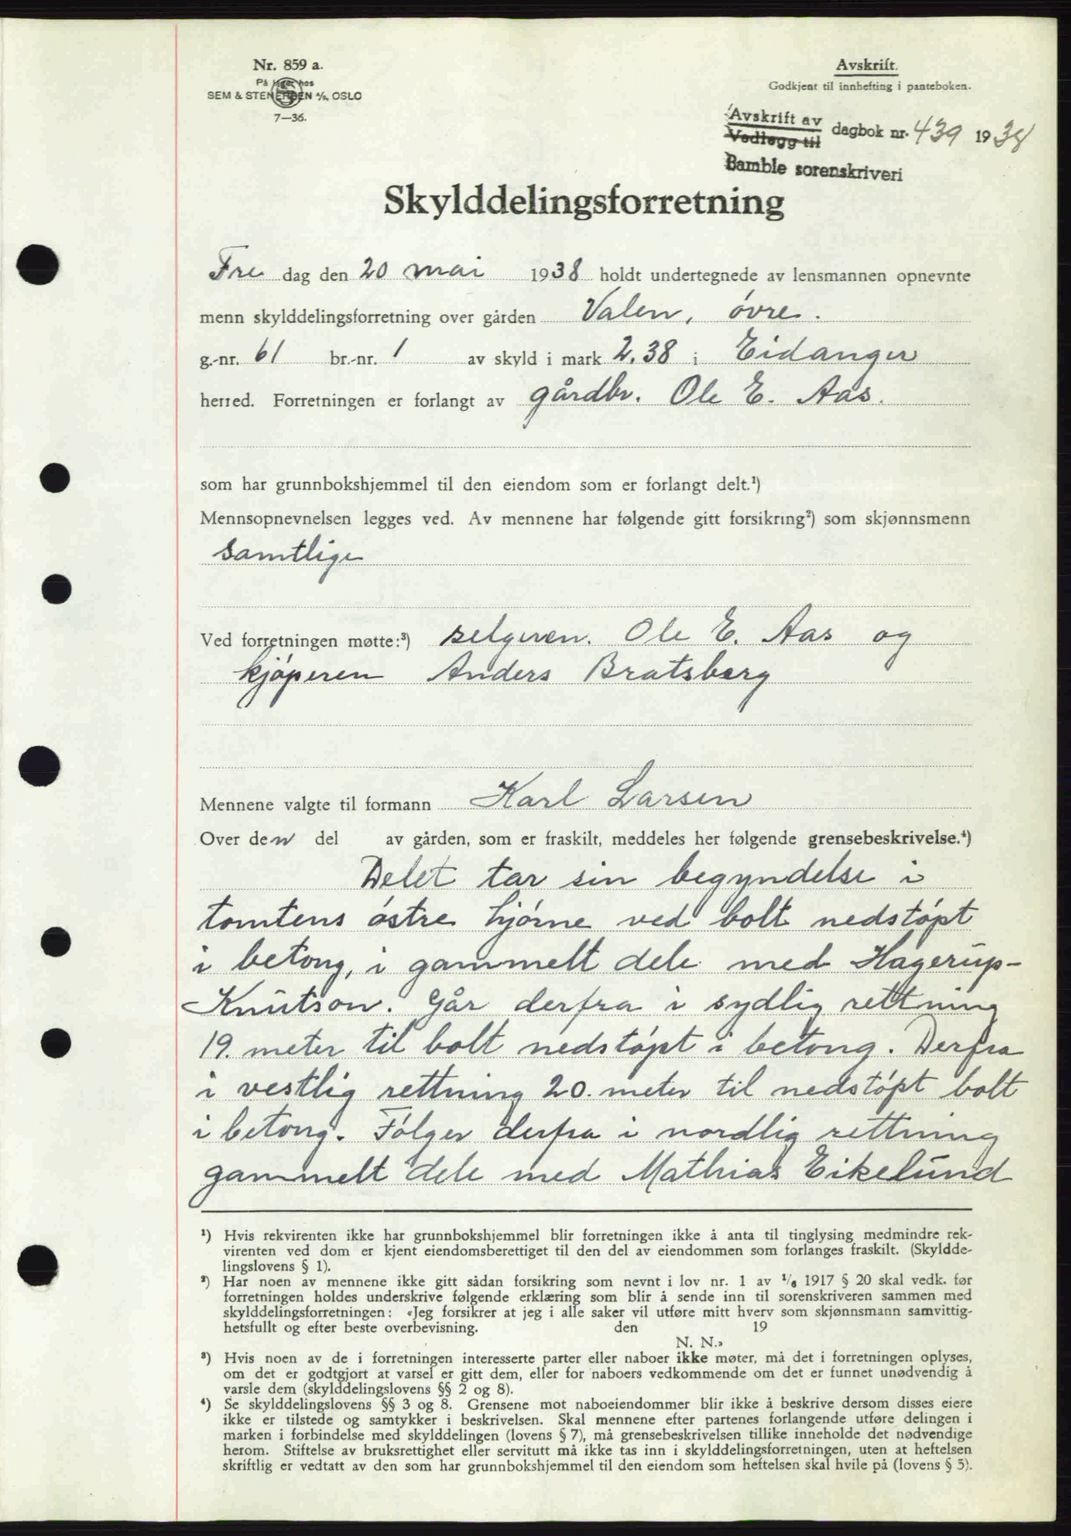 Nr. 859 a.
På lager hos
SEM & STENERSEN A/S, OSLO
7—36.
Avskrift.
Godkjent til innhefting i panteboken.
Avskrift av
Vedlegg til
dagbok nr. 439 1938
Bamble sorenskriveri
Skylddelingsforretning
Fre dag den 20 mai 1938 holdt undertegnede av lensmannen opnevnte
menn skylddelingsforretning over gården Valen, øvre.
g.-nr. 61 br.-nr. 1 av skyld i mark 2,38 i Eidanger
herred. Forretningen er forlangt av gårdbr. Ole E. Aas.
som har grunnbokshjemmel til den eiendom som er forlangt delt.¹)
Mennsopnevnelsen legges ved. Av mennene har følgende gitt forsikring²) som skjønnsmenn
samtlige
Ved forretningen møtte:³) selgeren. Ole E. Aas og
kjøperen Anders Bratsberg
Mennene valgte til formann Karl Larsen
Over den del av gården, som er fraskilt, meddeles her følgende grensebeskrivelse.⁴)
Delet tar sin begyndelse i
tomtens østre hjørne ved bolt nedstøpt
i betong, i gammelt dele med Hagerup-
Knutson. Går derfra i sydlig rettning
19. meter til bolt nedstøpt i betong. Derfra
i vestlig rettning 20. meter til nedstøpt bolt
i betong. Følger derfra i nordlig rettning
gammelt dele med Mathias Eikelund
¹) Hvis rekvirenten ikke har grunnbokshjemmel blir forretningen ikke å anta til tinglysing medmindre rek-
virenten ved dom er kjent eiendomsberettiget til den del av eiendommen som forlanges fraskilt. (Skyldde-
lingslovens § 1).
²) Har noen av mennene ikke gitt sådan forsikring som nevnt i lov nr. 1 av 1/6 1917 § 20 skal vedk. før
forretningen holdes underskrive følgende erklæring som blir å sende inn til sorenskriveren sammen med
skylddelingsforretningen: «Jeg forsikrer at jeg i alle saker vil utføre mitt hverv som skjønnsmann samvittig-
hetsfullt og efter beste overbevisning. den 19
N. N.»
³) Hvis noen av de i forretningen interesserte parter eller naboer ikke møter, må det i forretningen oplyses,
om det er godtgjort at varsel er gitt dem, eller for naboers vedkommende om det er funnet unødvendig å
varsle dem (skylddelingslovens §§ 2 og 8).
⁴) Se skylddelingslovens §§ 3 og 8. Grensene mot naboeiendommer blir ikke å beskrive dersom disses eiere
ikke er tilstede og samtykker i beskrivelsen. Skal mennene efter partenes forlangende utføre delingen i
marken i forbindelse med skylddelingen (lovens § 7), må grensebeskrivelsen tillike inneholde det nødvendige
herom. Stiftelse av bruksrettighet eller servitutt må ikke tas inn i skylddelingsforretningen, uten at heftelsen
skriftlig er vedtatt av den som har grunnbokshjemmel til den eiendom som heftelsen skal hvile på (lovens § 5).